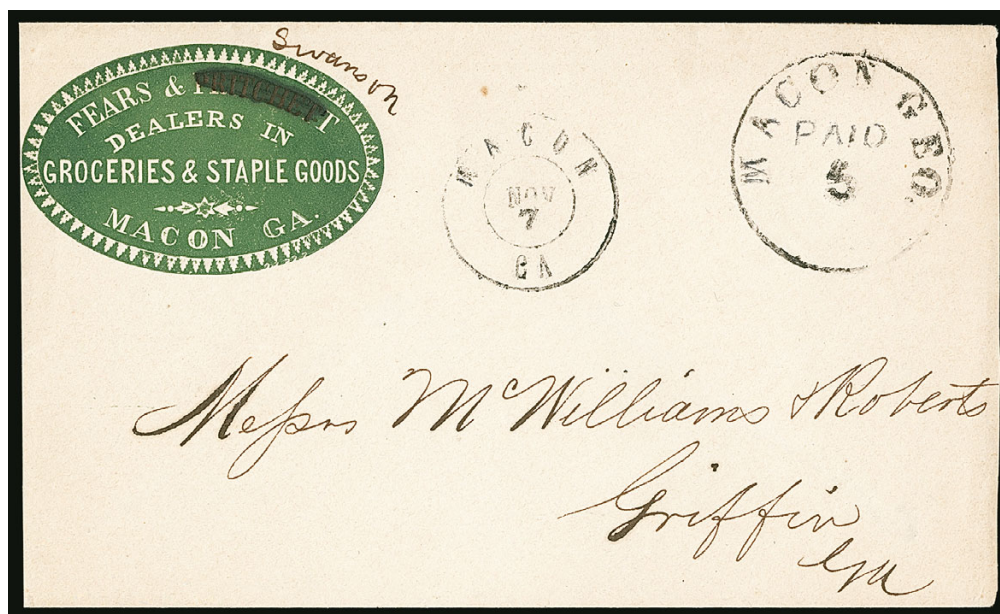 Swanson
FEARS &
DEALERS IN
GROCERIES & STAPLE GOODS
MACON GA.
MACON
NOV
7
GA
MACON GEO.
PAID
5
Messrs McWilliams & Roberts
Griffin
Ga